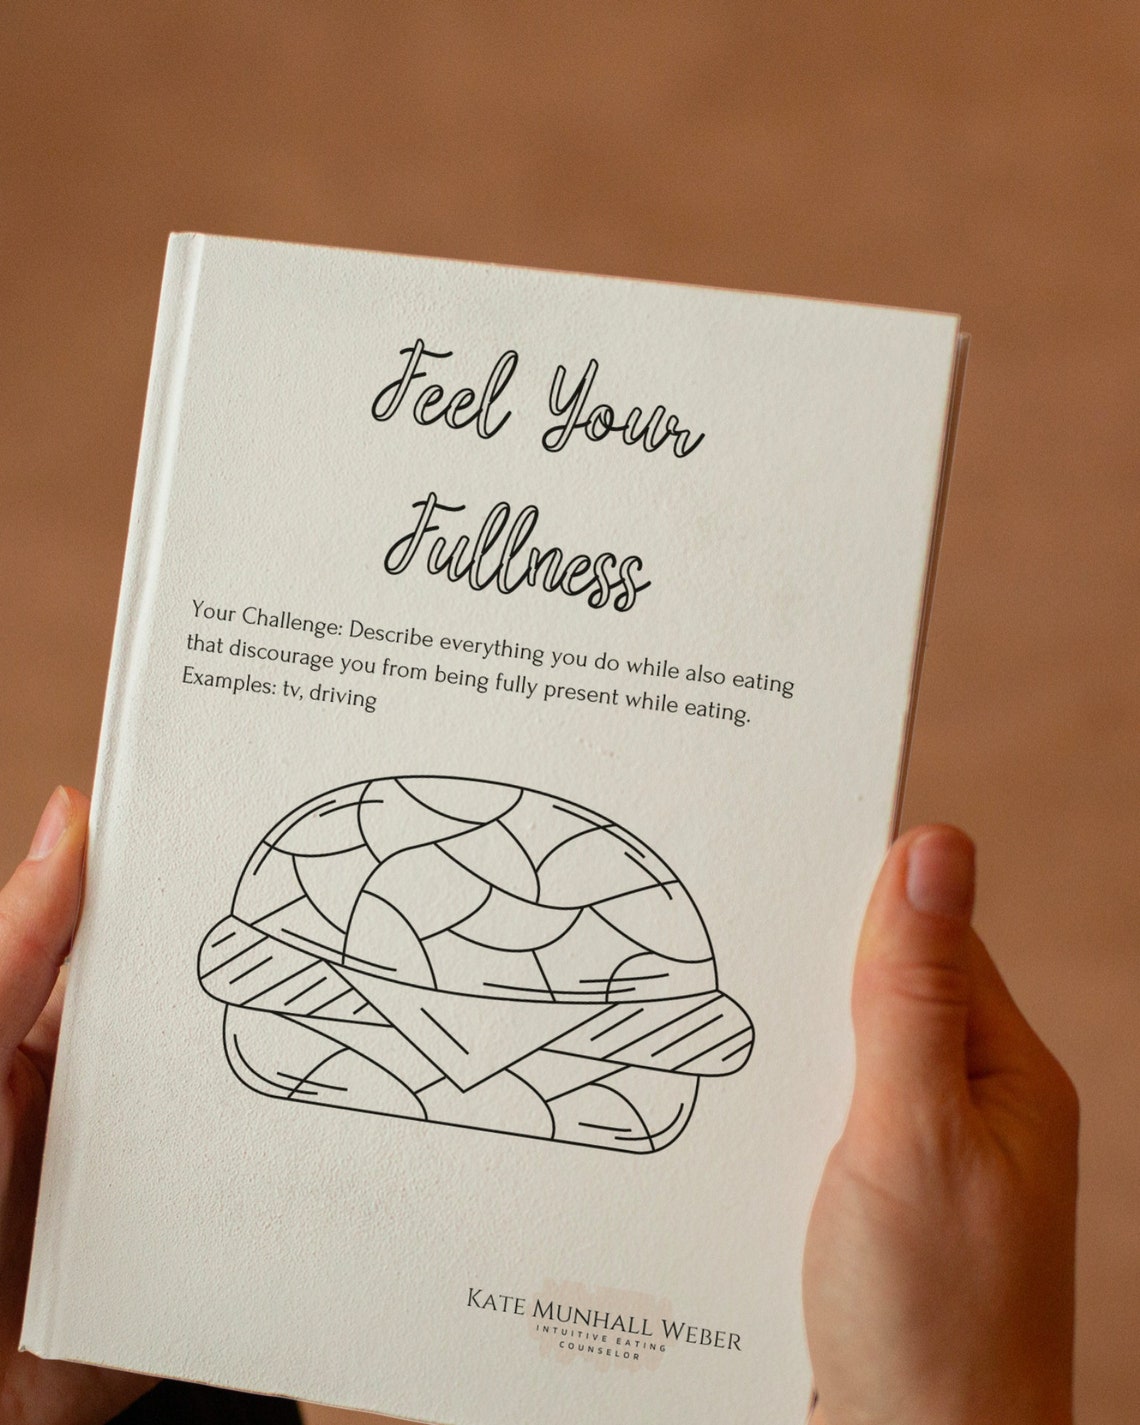 Feel Your
Fullness
Your Challenge: Describe everything you do while also eating
that discourage you from being fully present while eating.
Examples: tv, driving
KATE MUNHALL WEBER
INTUITIVE EATING
COUNSELOR